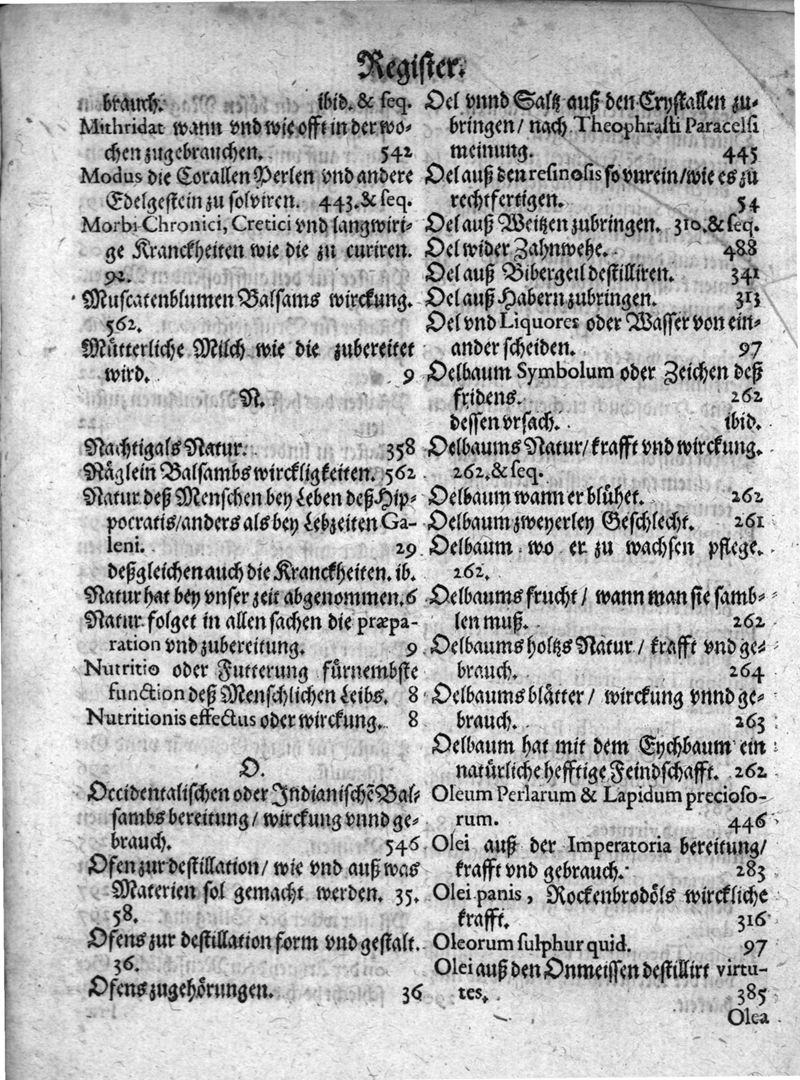 Register.
brauch. ibid. & seq.
Mithridat wann vnd wie offt in der wo-
chen zugebrauchen. 542
Modus die Corallen Perlen vnd andere
Edelgestein zu solviren. 443. & seq.
Morbi Chronici, Cretici vnd langwiri-
ge Kranckheiten wie die zu curiren.
92.
Muscatenblumen Balsams wirckung.
562.
Mütterliche Milch wie die zubereitet
wird. 9
N.
Nachtigals Natur. 358
Näglein Balsambs wirckligkeiten. 562
Natur deß Menschen bey Leben deß Hip-
pocratis/anders als bey Lebzeiten Ga-
leni. 29
deßgleichen auch die Kranckheiten. ib.
Natur hat bey vnser zeit abgenommen. 6
Natur folget in allen sachen die præpa-
ration vnd zubereitung. 9
Nutritio oder Futterung fürnembste
function deß Menschlichen Leibs. 8
Nutritionis effectus oder wirckung. 8
O.
Occidentalischen oder Indianischẽ Bal-
sambs bereitung/ wirckung vnnd ge-
brauch. 546
Ofen zur destillation/ wie vnd auß was
Materien sol gemacht werden. 35.
58.
Ofens zur destillation form vnd gestalt.
36.
Ofens zugehörungen. 36
Oel vnnd Saltz auß den Crystallen zu-
bringen/ nach Theophrasti Paracelsi
meinung. 445
Oel auß den resinosis so vnrein/wie es zu
rechtfertigen. 54
Oel auß Weitzen zubringen. 310. & seq.
Oel wider Zahnwehe. 488
Oel auß Bibergeil destilliren. 341
Oel auß Habern zubringen. 313
Oel vnd Liquores oder Wasser von ein-
ander scheiden. 97
Oelbaum Symbolum oder Zeichen deß
fridens. 262
dessen vrsach. ibid.
Oelbaums Natur/ krafft vnd wirckung.
262. & seq.
Oelbaum wann er blühet. 262
Oelbaum zweyerley Geschlecht. 261
Oelbaum wo er zu wachsen pflege.
262.
Oelbaums frucht/ wann man sie samb-
len muß. 262
Oelbaums holtzs Natur/ krafft vnd ge-
brauch. 264
Oelbaums blätter/ wirckung vnnd ge-
brauch. 263
Oelbaum hat mit dem Eychbaum ein
natürliche hefftige Feindschafft. 262
Oleum Perlarum & Lapidum precioso-
rum. 446
Olei auß der Imperatoria bereitung/
krafft vnd gebrauch. 283
Olei panis, Rockenbrodöls wirckliche
krafft. 316
Oleorum sulphur quid. 97
Olei auß den Onmeissen destillirt virtu-
tes. 385
Olea